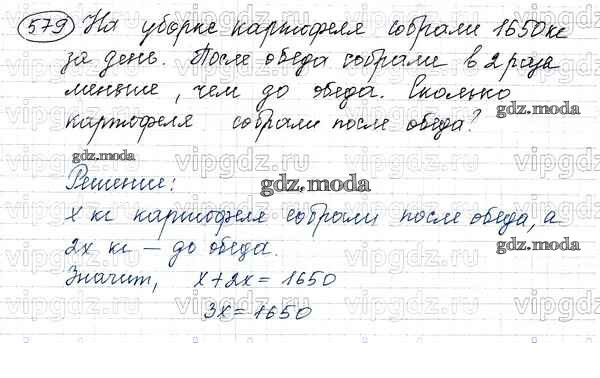 579 На уборке картофеля собрали 1650 кг
за день. После обеда собрали в 2 раза
меньше, чем до обеда. Сколько
картофеля собрали после обеда?
Решение:
x кг картофеля собрали после обеда, а
2x кг — до обеда.
Значит, x+2x=1650
3x=1650
gdz.moda
gdz.moda
gdz.moda
gdz.moda
vipgdz.ru